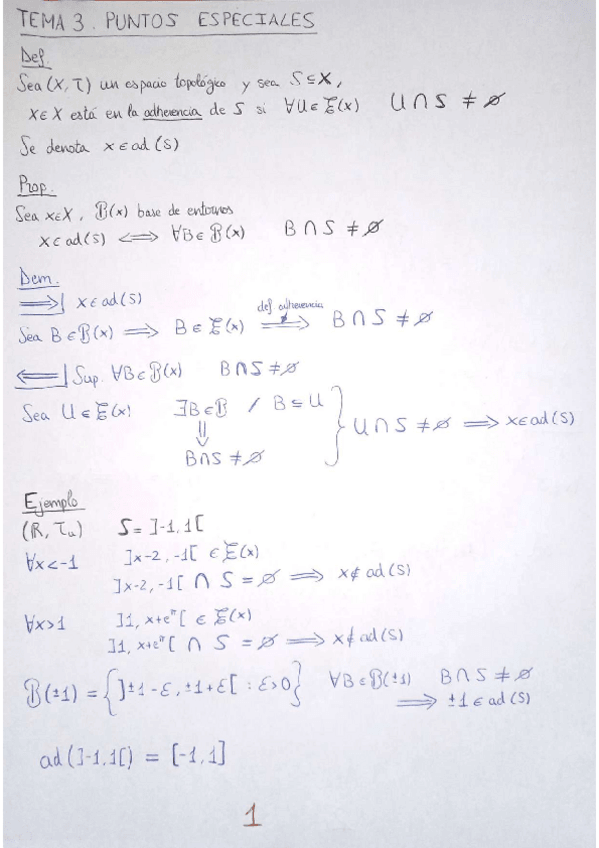 TEMA 3. PUNTOS ESPECIALES
Def.
Sea (X, τ) un espacio topológico y sea S⊆X,
x∈X está en la adherencia de S si ∀U∈ξ(x) U∩S ≠ ∅
Se denota x∈ad(S)
Prop.
Sea x∈X, B(x) base de entornos
x∈ad(S) ⟺ ∀B∈B(x) B∩S ≠ ∅
Dem.
⟹| x∈ad(S)
Sea B∈B(x) ⟹ B∈ξ(x) ⟹ B∩S ≠ ∅
def adherencia
⟸| Sup. ∀B∈B(x) B∩S ≠ ∅
Sea U∈ξ(x) ∃B∈B / B⊆U } U∩S ≠ ∅ ⟹ x∈ad(S)
⇓
B∩S ≠ ∅
Ejemplo
(R, τu) S = ]-1,1[
∀x<-1 ]x-2, -1[ ∈ ξ(x)
]x-2, -1[ ∩ S = ∅ ⟹ x∉ad(S)
∀x>1 ]1, x+eπ[ ∈ ξ(x)
]1, x+eπ[ ∩ S = ∅ ⟹ x∉ad(S)
B(±1) = { ]±1-ε, ±1+ε[ : ε>0 } ∀B∈B(±1) B∩S ≠ ∅
⟹ ±1∈ad(S)
ad(]-1,1[) = [-1,1]
1